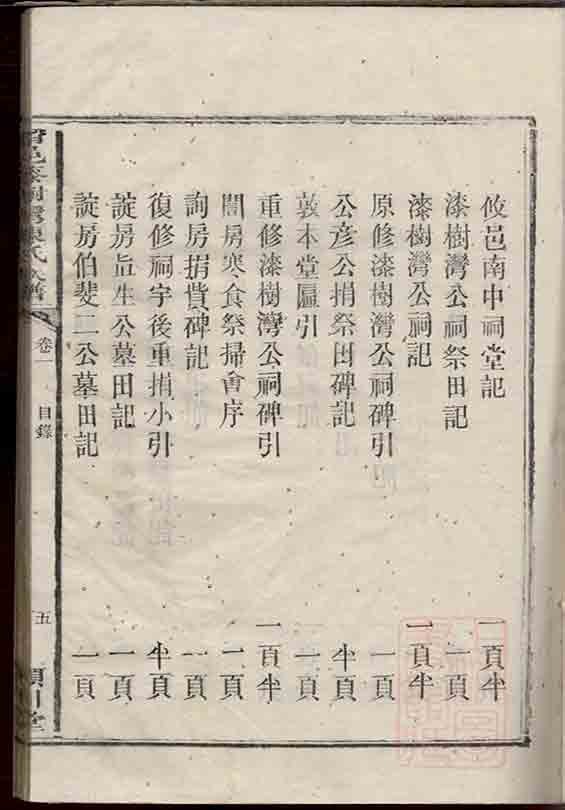 攸邑南中祠堂記 一頁半
漆樹灣公祠祭田記 一頁
漆樹灣公祠記 一頁半
原修漆樹灣公祠碑引 一頁
公彥公捐祭田碑記 半頁
敦本堂匾引 一頁
重修漆樹灣公祠碑引 一頁半
誾房寒食祭掃會序 一頁
詢房捐貲碑記 一頁
復修祠宇後重捐小引 半頁
諚房嵓生公墓田記 一頁
諚房伯斐二公墓田記 一頁
卷一
目錄
五
潁川堂